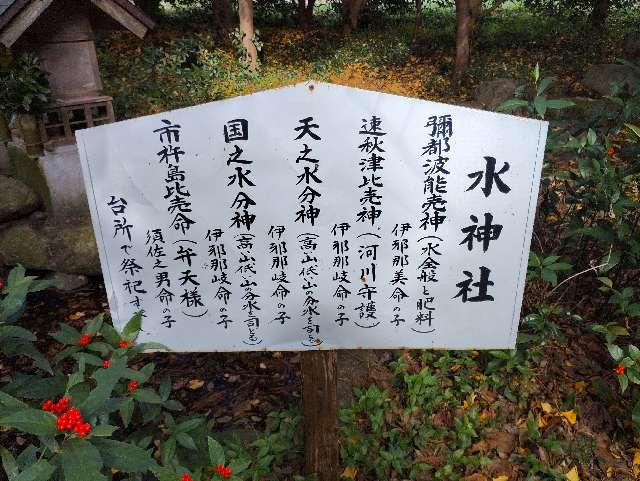 水神社
彌都波能売神（水全般と肥料）
伊那那美命の子
速秋津比売神（河川守護）
伊那那岐命の子
天之水分神（高山低山の分水を司る）
伊那那岐命の子
国之水分神（高山低山の分水を司る）
伊那那岐命の子
市杵島比売命（弁天様）
須佐之男命の子
台所で祭祀す